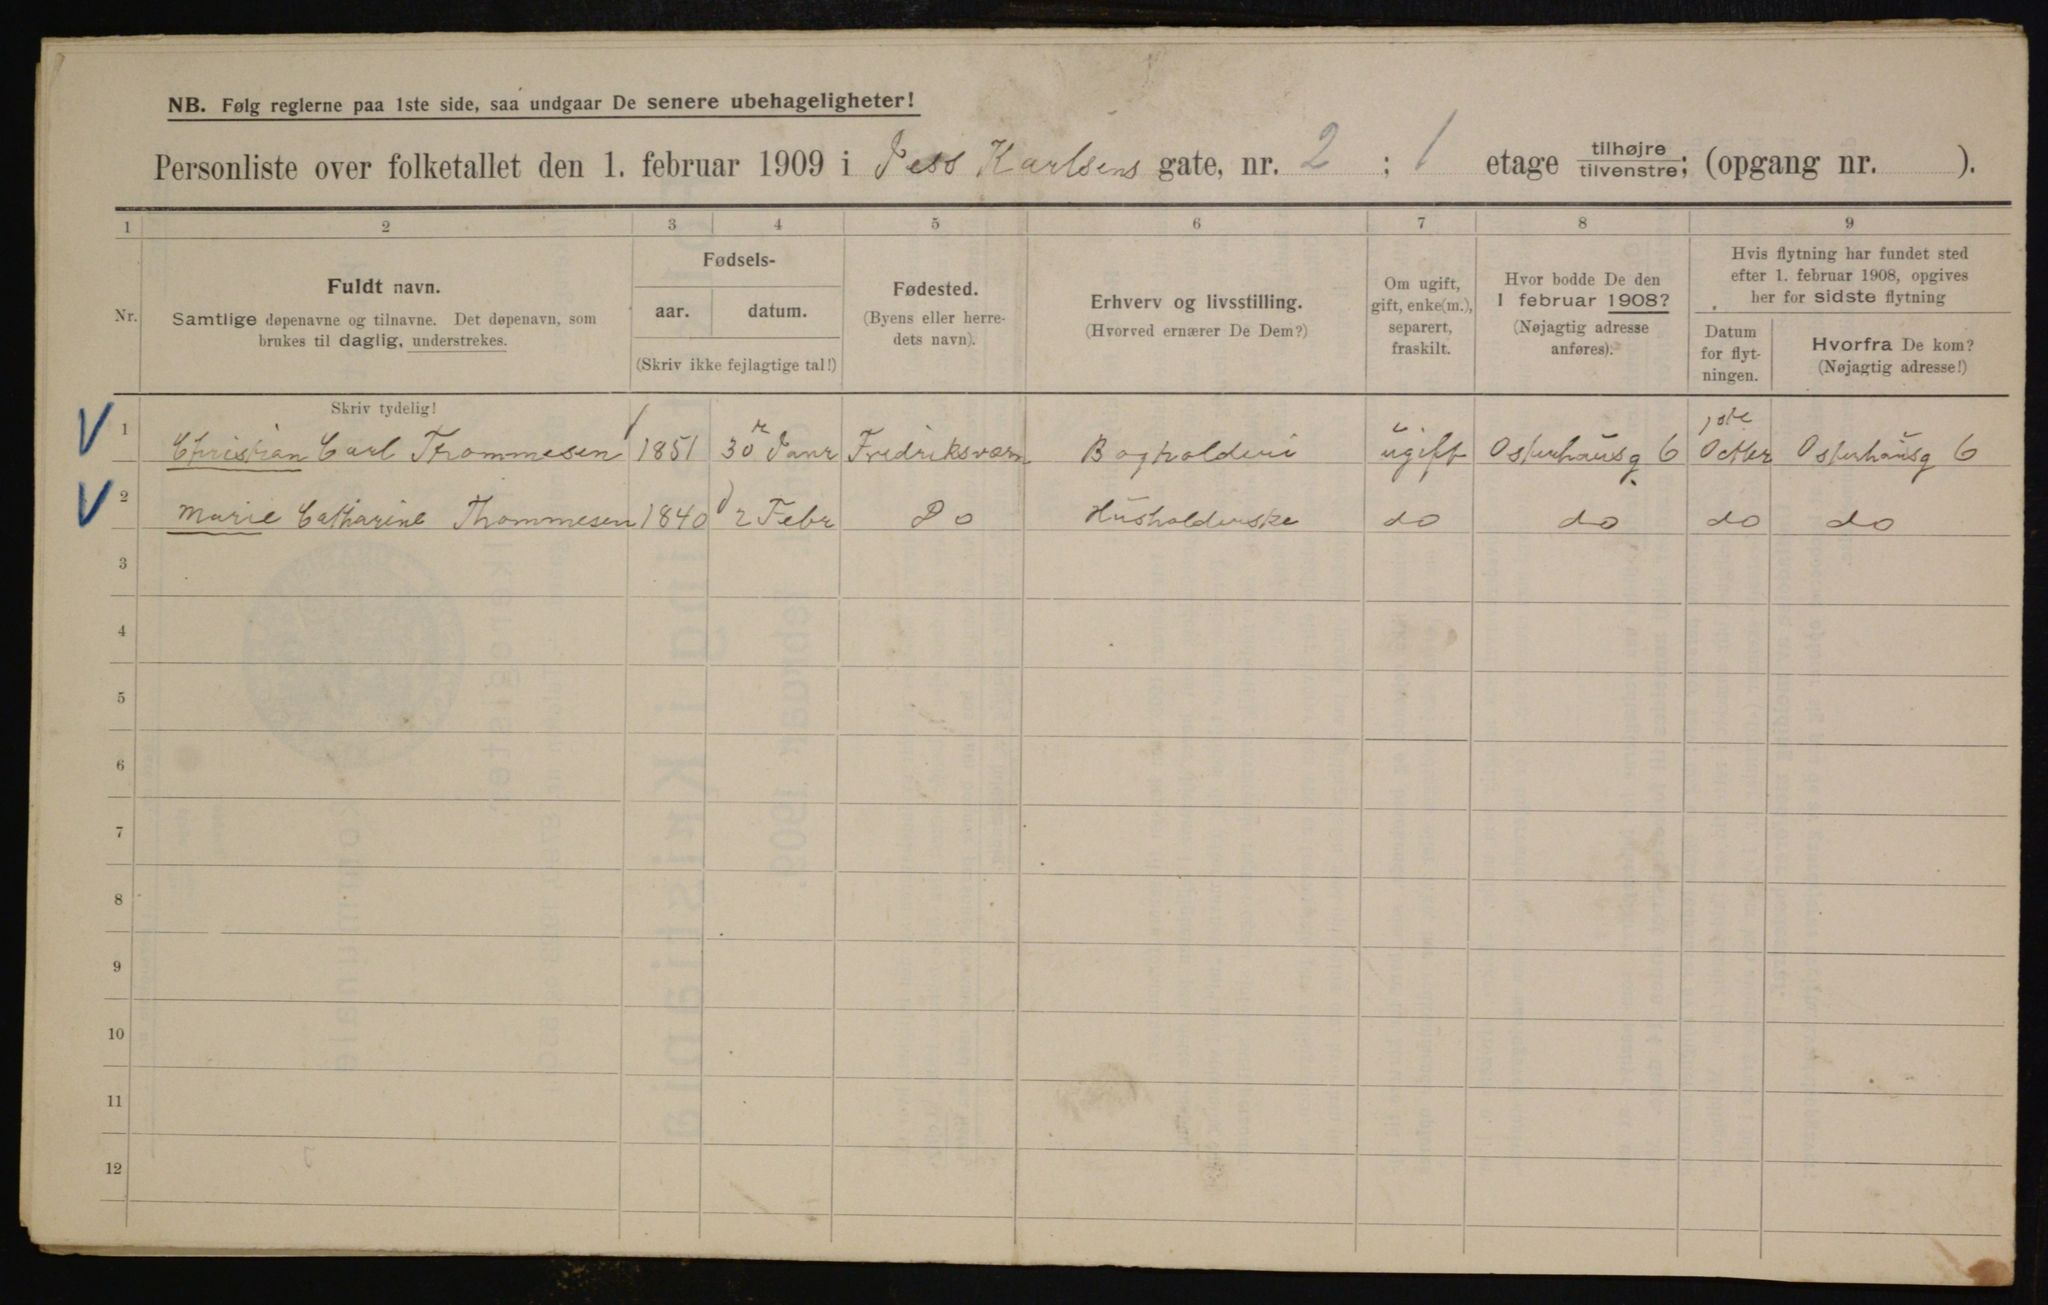 NB. Følg reglerne paa 1ste side, saa undgaar De senere ubehageligheter!
Personliste over folketallet den 1. februar 1909 i Jess Karlsens gate, nr. 2 ; 1 etage tilhøjre/tilvenstre; (opgang nr. ).
1 2 3 4 5 6 7 8 9
Nr.
Fuldt navn.
Samtlige døpenavne og tilnavne. Det døpenavn, som
brukes til daglig, understrekes.
Fødsels-
aar. datum.
(Skriv ikke fejlagtige tal!)
Fødested.
(Byens eller herre-
dets navn).
Erhverv og livsstilling.
(Hvorved ernærer De Dem?)
Om ugift,
gift, enke(m.),
separert,
fraskilt.
Hvor bodde De den
1 februar 1908?
(Nøjagtig adresse
anføres).
Hvis flytning har fundet sted
efter 1. februar 1908, opgives
her for sidste flytning
Datum
for flyt-
ningen.
Hvorfra De kom?
(Nøjagtig adresse!)
Skriv tydelig!
1 Christian Carl Thommesen 1851 30 Janr Fredriksværn Bogholderi ugift Osterhausg 6 1ste Octbr Osterhausg 6
2 Marie Catharine Thommesen 1840 2 Febr Do Husholderske do do do do
3
4
5
6
7
8
9
10
11
12